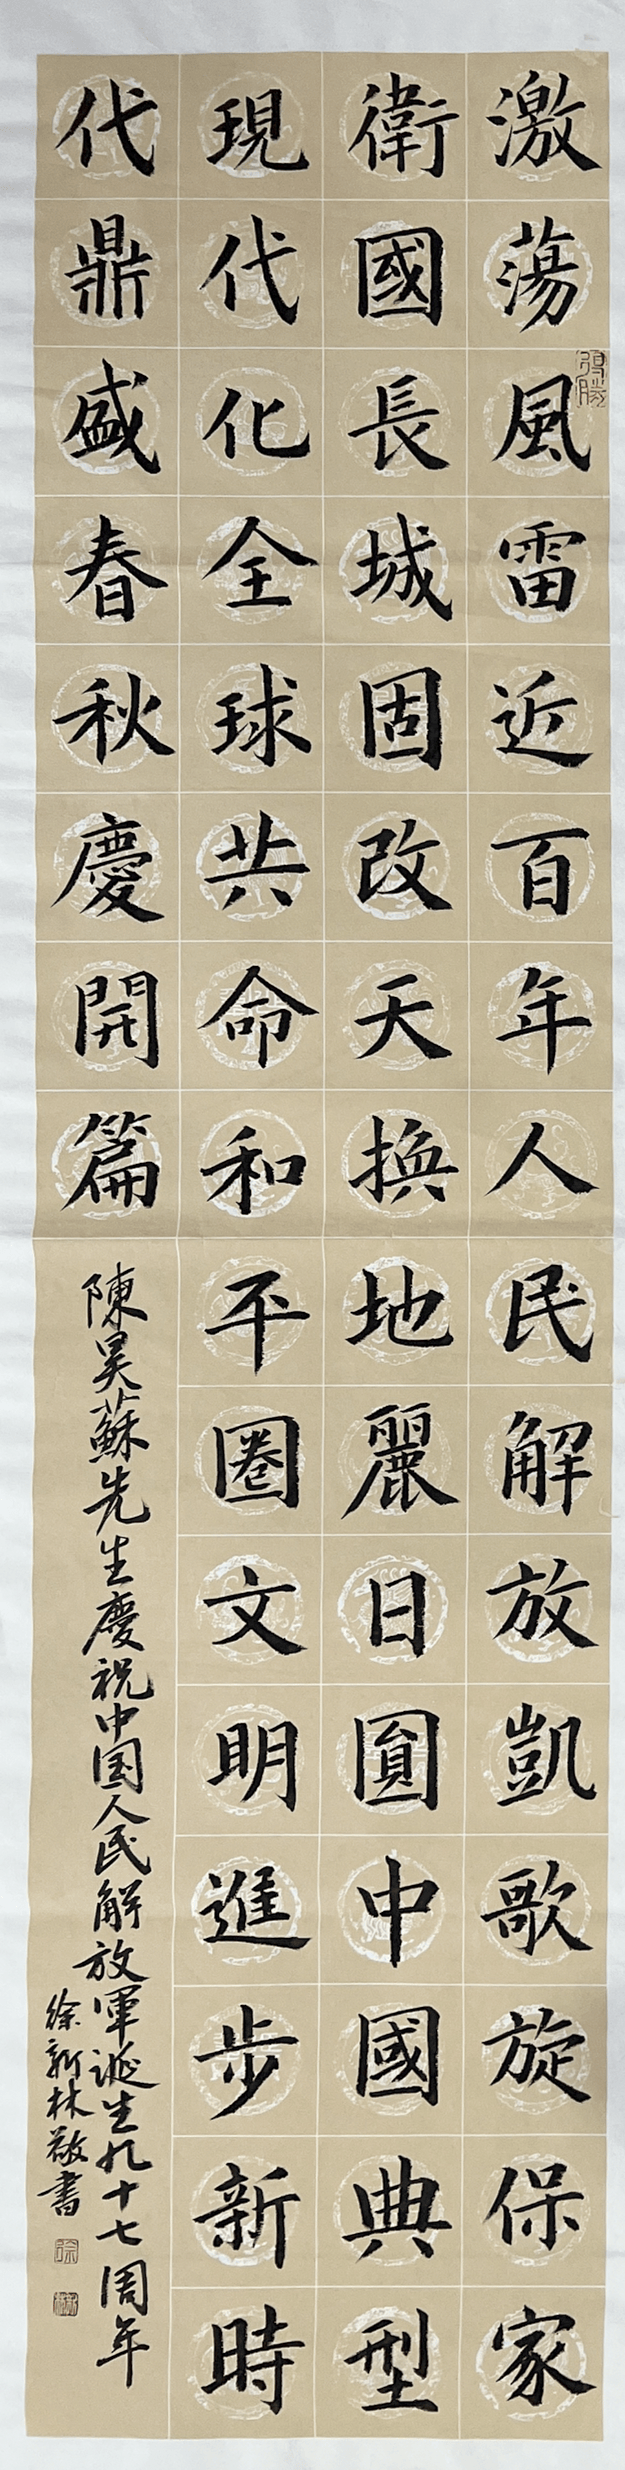 激蕩風雷近百年人民解放凱歌旋保家
衛國長城固改天換地麗日圓中國典型
現代化全球共命和平圈文明進步新時
代鼎盛春秋慶開篇
陳昊蘇先生慶祝中国人民解放軍誕生九十七周年
徐新林敬書